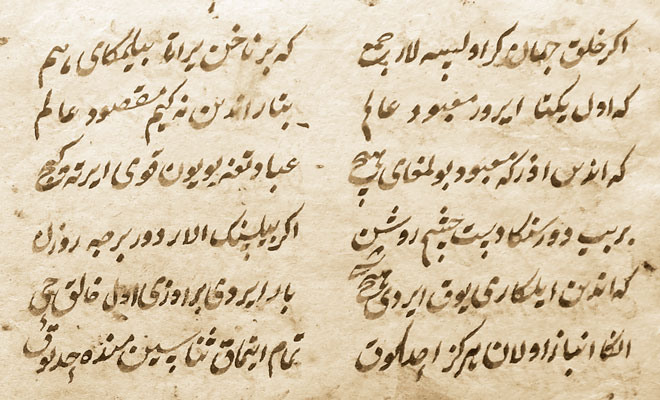 اکر خلق جهان کر اولیسه لار جمع که بر ناخن یراتا بیلمکای هم
که اول یکتا ایرور معبود عالم یتار اندین نه کیم مقصود عالم
که اندین اوزکه معبود بولمغای هیچ عبادتغه بویون قوی ایرته و کیچ
بریب دور سنکا دست چشم روشن اکر بیلسنک الار دور برچه روزن
که اندین ایلکاری یوق ایردی هیچ شی بار ایردی بر اوزی اول خالق حی
انکا انباز اولان هرکز احد یوق تمام ایتماق ثناسین منده حد یوق